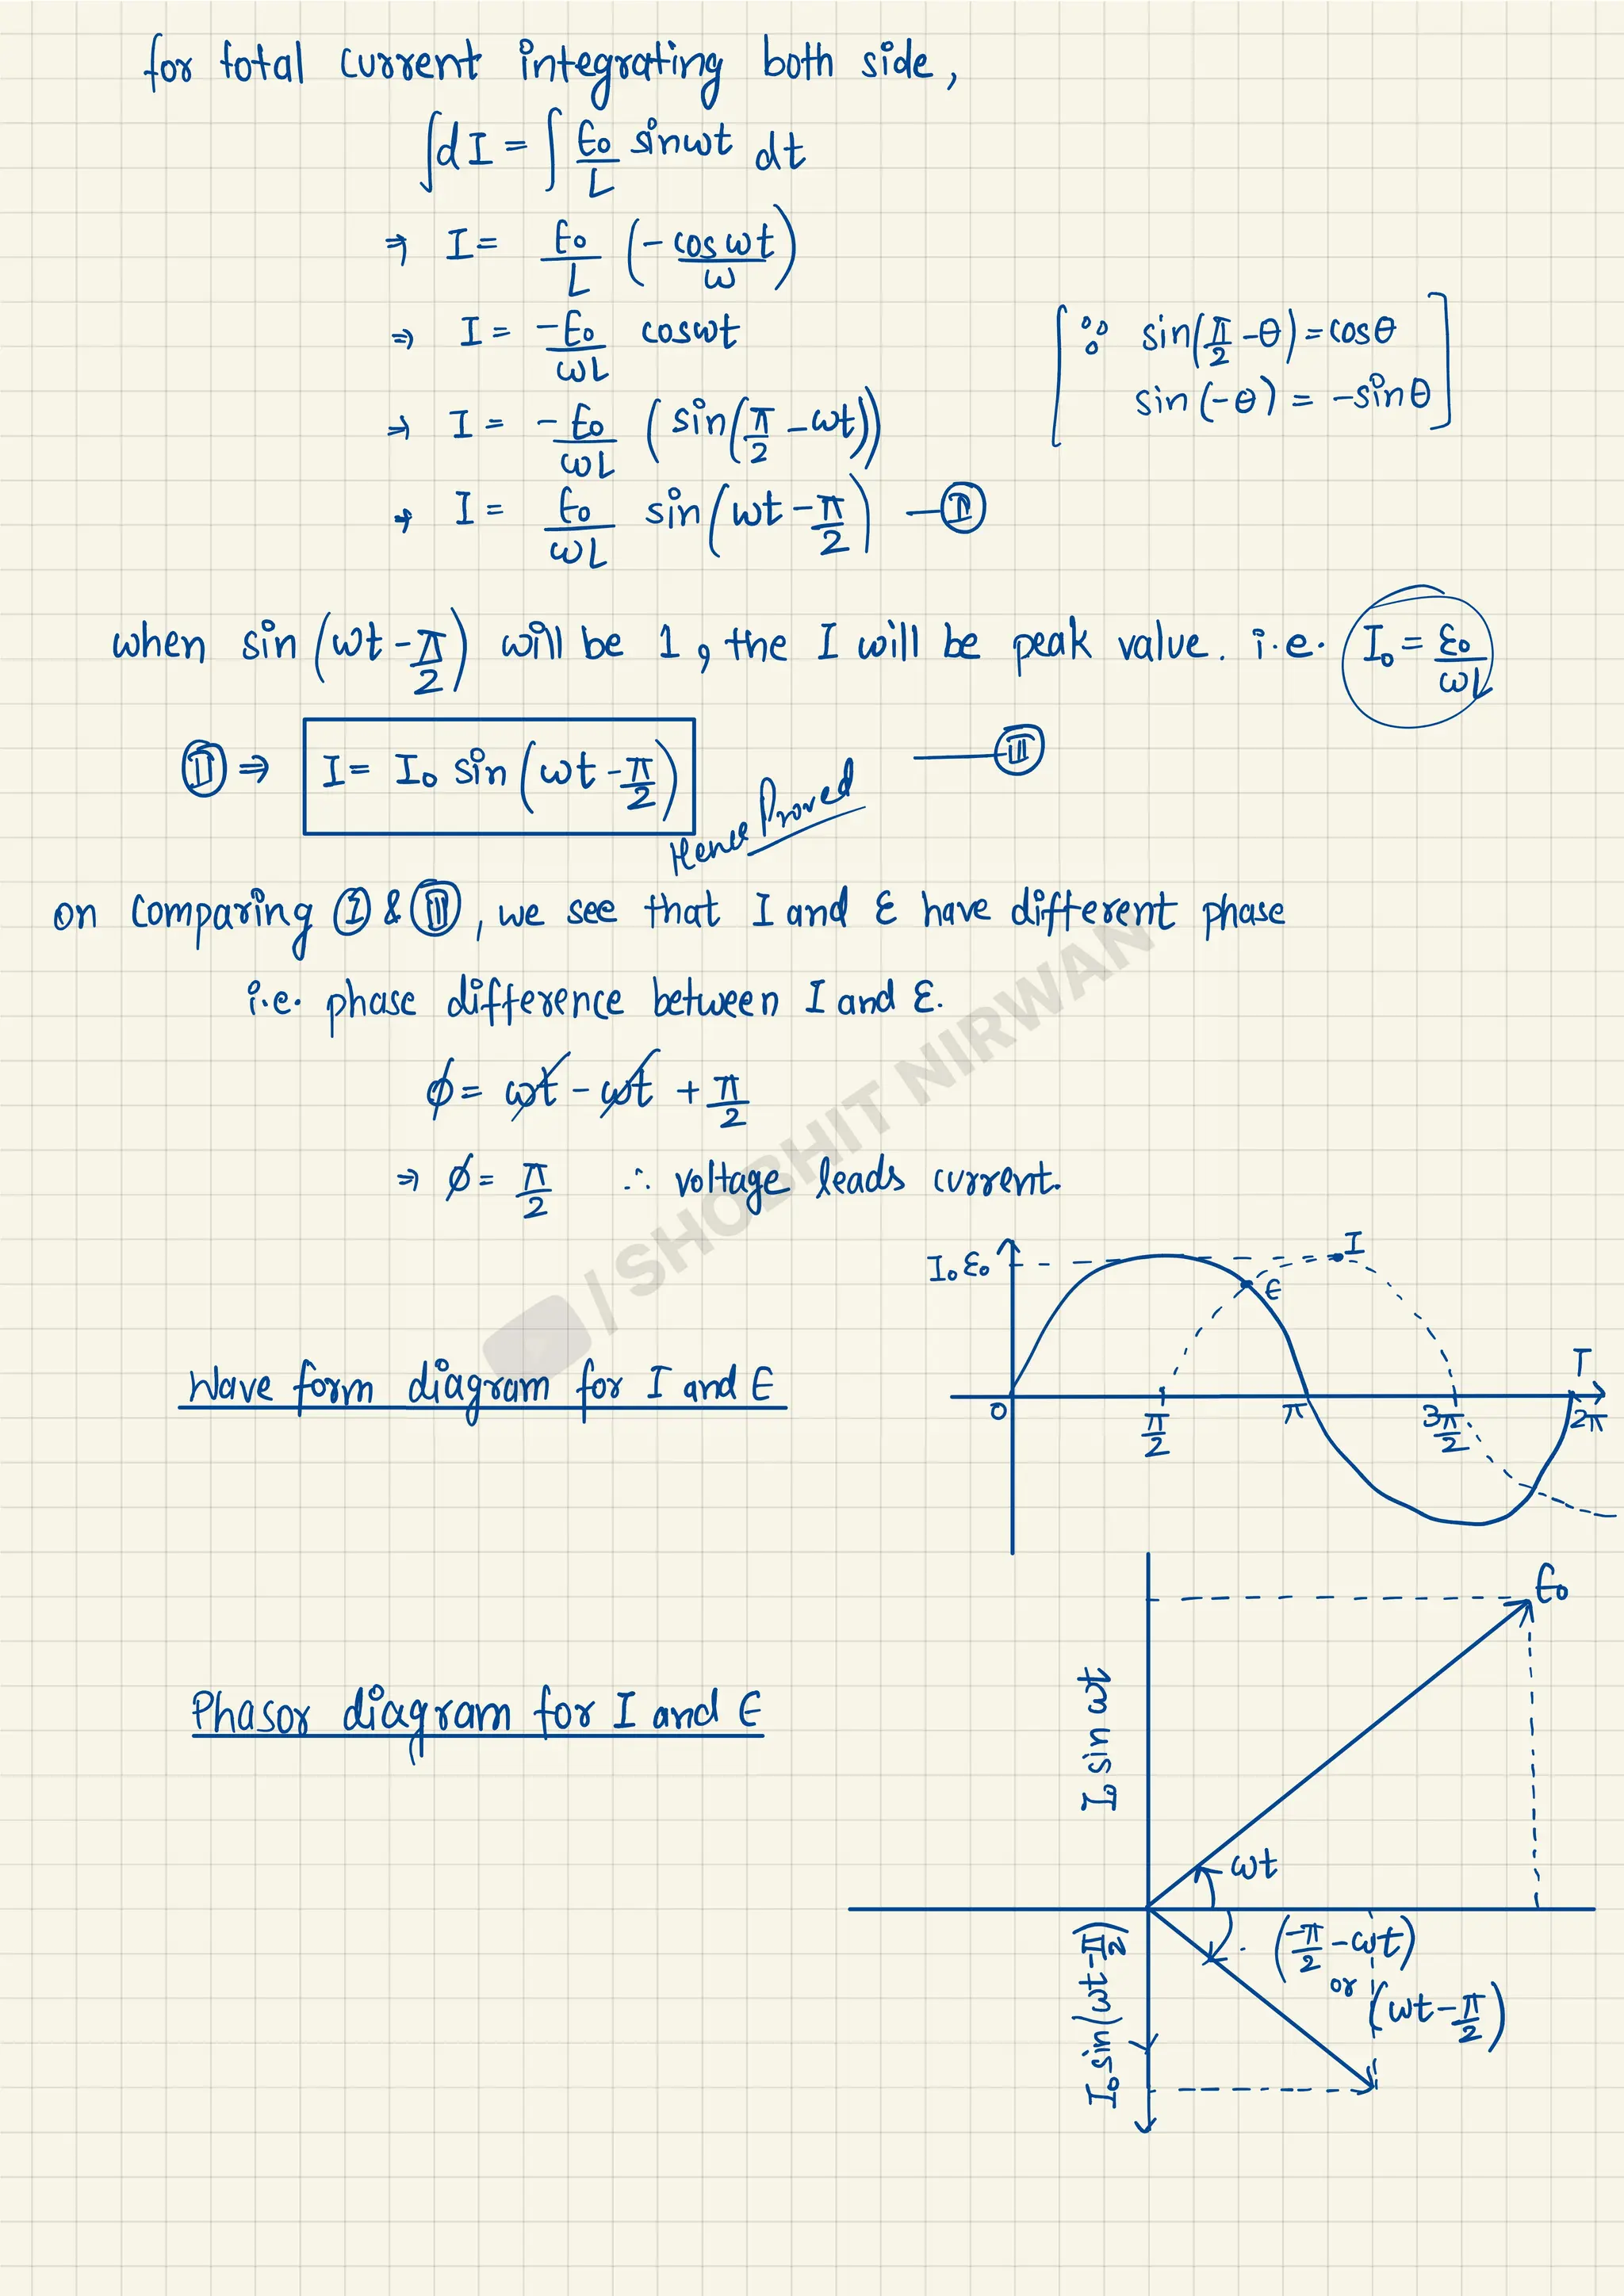 for total current integrating both side,
∫dI = ∫ E₀/L sinωt dt
⇒ I = E₀/L (-cosωt/ω)
⇒ I = -E₀/ωL cosωt
[∵ sin(π/2 -θ) = cosθ
sin(-θ) = -sinθ]
⇒ I = -E₀/ωL (sin(π/2 - ωt))
⇒ I = E₀/ωL sin(ωt - π/2) —(II)
when sin(ωt - π/2) will be 1, the I will be peak value. i.e. I₀ = ε₀/ωL
(II) ⇒ I = I₀ sin(ωt - π/2) —(III)
Hence Proved
on comparing (I) & (III), we see that I and ε have different phase
i.e. phase difference between I and ε.
ϕ = ωt - ωt + π/2
⇒ ϕ = π/2 ∴ voltage leads current.
/ SHOBHIT NIRWAN
I₀ ε₀
I
ε
T
0 π/2 π 3π/2 2π
Wave form diagram for I and ε
E₀
I₀ sin ωt
Phasor diagram for I and ε
ωt
I₀ sin(ωt - π/2)
(-π/2 - ωt)
or
(ωt - π/2)